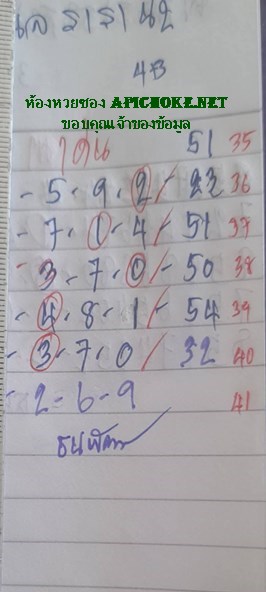 4B
ห้องหวยซอง APICHOKE.NET
ขอบคุณเจ้าของข้อมูล
เด่น 51 35
- 5 - 9 - 2 / - 22 36
- 7 - 1 - 4 / - 51 37
- 3 - 7 - 0 / - 50 38
- 4 - 8 - 1 / - 54 39
- 3 - 7 - 0 / 32 40
- 2 - 6 - 9 41